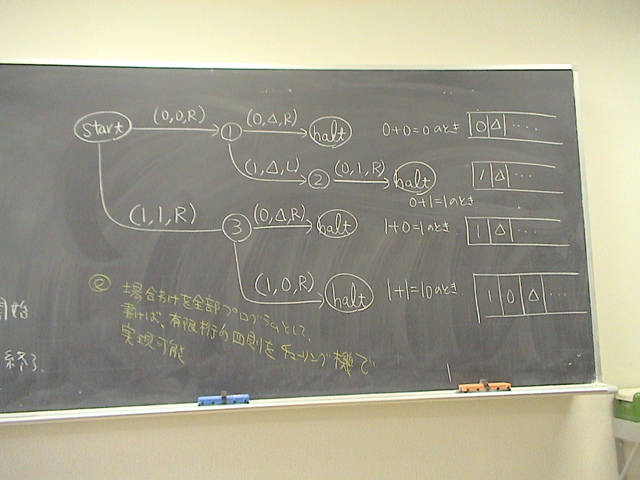 start (0,0,R) 1 (0,Δ,R) halt 0+0=0のとき 0 Δ ....
(1,Δ,L) 2 (0,1,R) halt 1 Δ ....
0+1=1のとき
(1,1,R) 3 (0,Δ,R) halt 1+0=1のとき 1 Δ ....
(1,0,R) halt 1+1=10のとき 1 0 Δ ....
場合わけを全部プログラムとして、
書けば、有限桁の四則をチューリング機で
実現可能
開始
終了